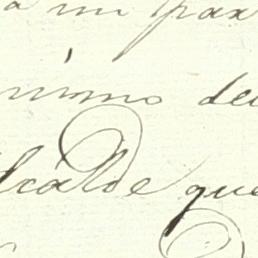 un par
nimo de
lcalde que